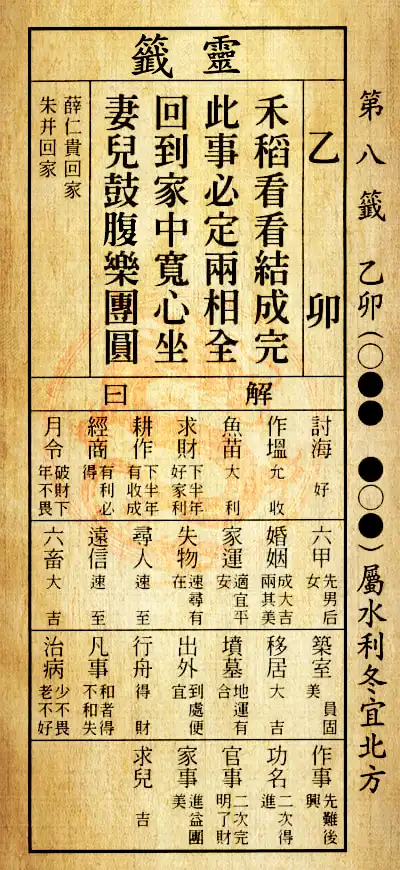 第八籤 乙卯(○●● ●○●)屬水利冬宜北方
靈籤
乙卯
禾稻看看結成完
此事必定兩相全
回到家中寬心坐
妻兒鼓腹樂團圓
薛仁貴回家
朱弁回家
解曰
討海 好
作塭 允收
魚苗 大利
求財 下半年好家利
耕作 下半年有收成
經商 有利必得
月令 破財下年不畏
六甲 先男后女
婚姻 成大吉兩其美
家運 適宜平安
失物 速尋有在
尋人 速至
遠信 速至
六畜 大吉
築室 員固美
移居 大吉
墳墓 地運有合
出外 到處便宜
行舟 得財
凡事 和者得不和失
治病 少不畏老不好
作事 先難後興
功名 二次得進
官事 二次完明了財
家事 進益團美
求兒 吉